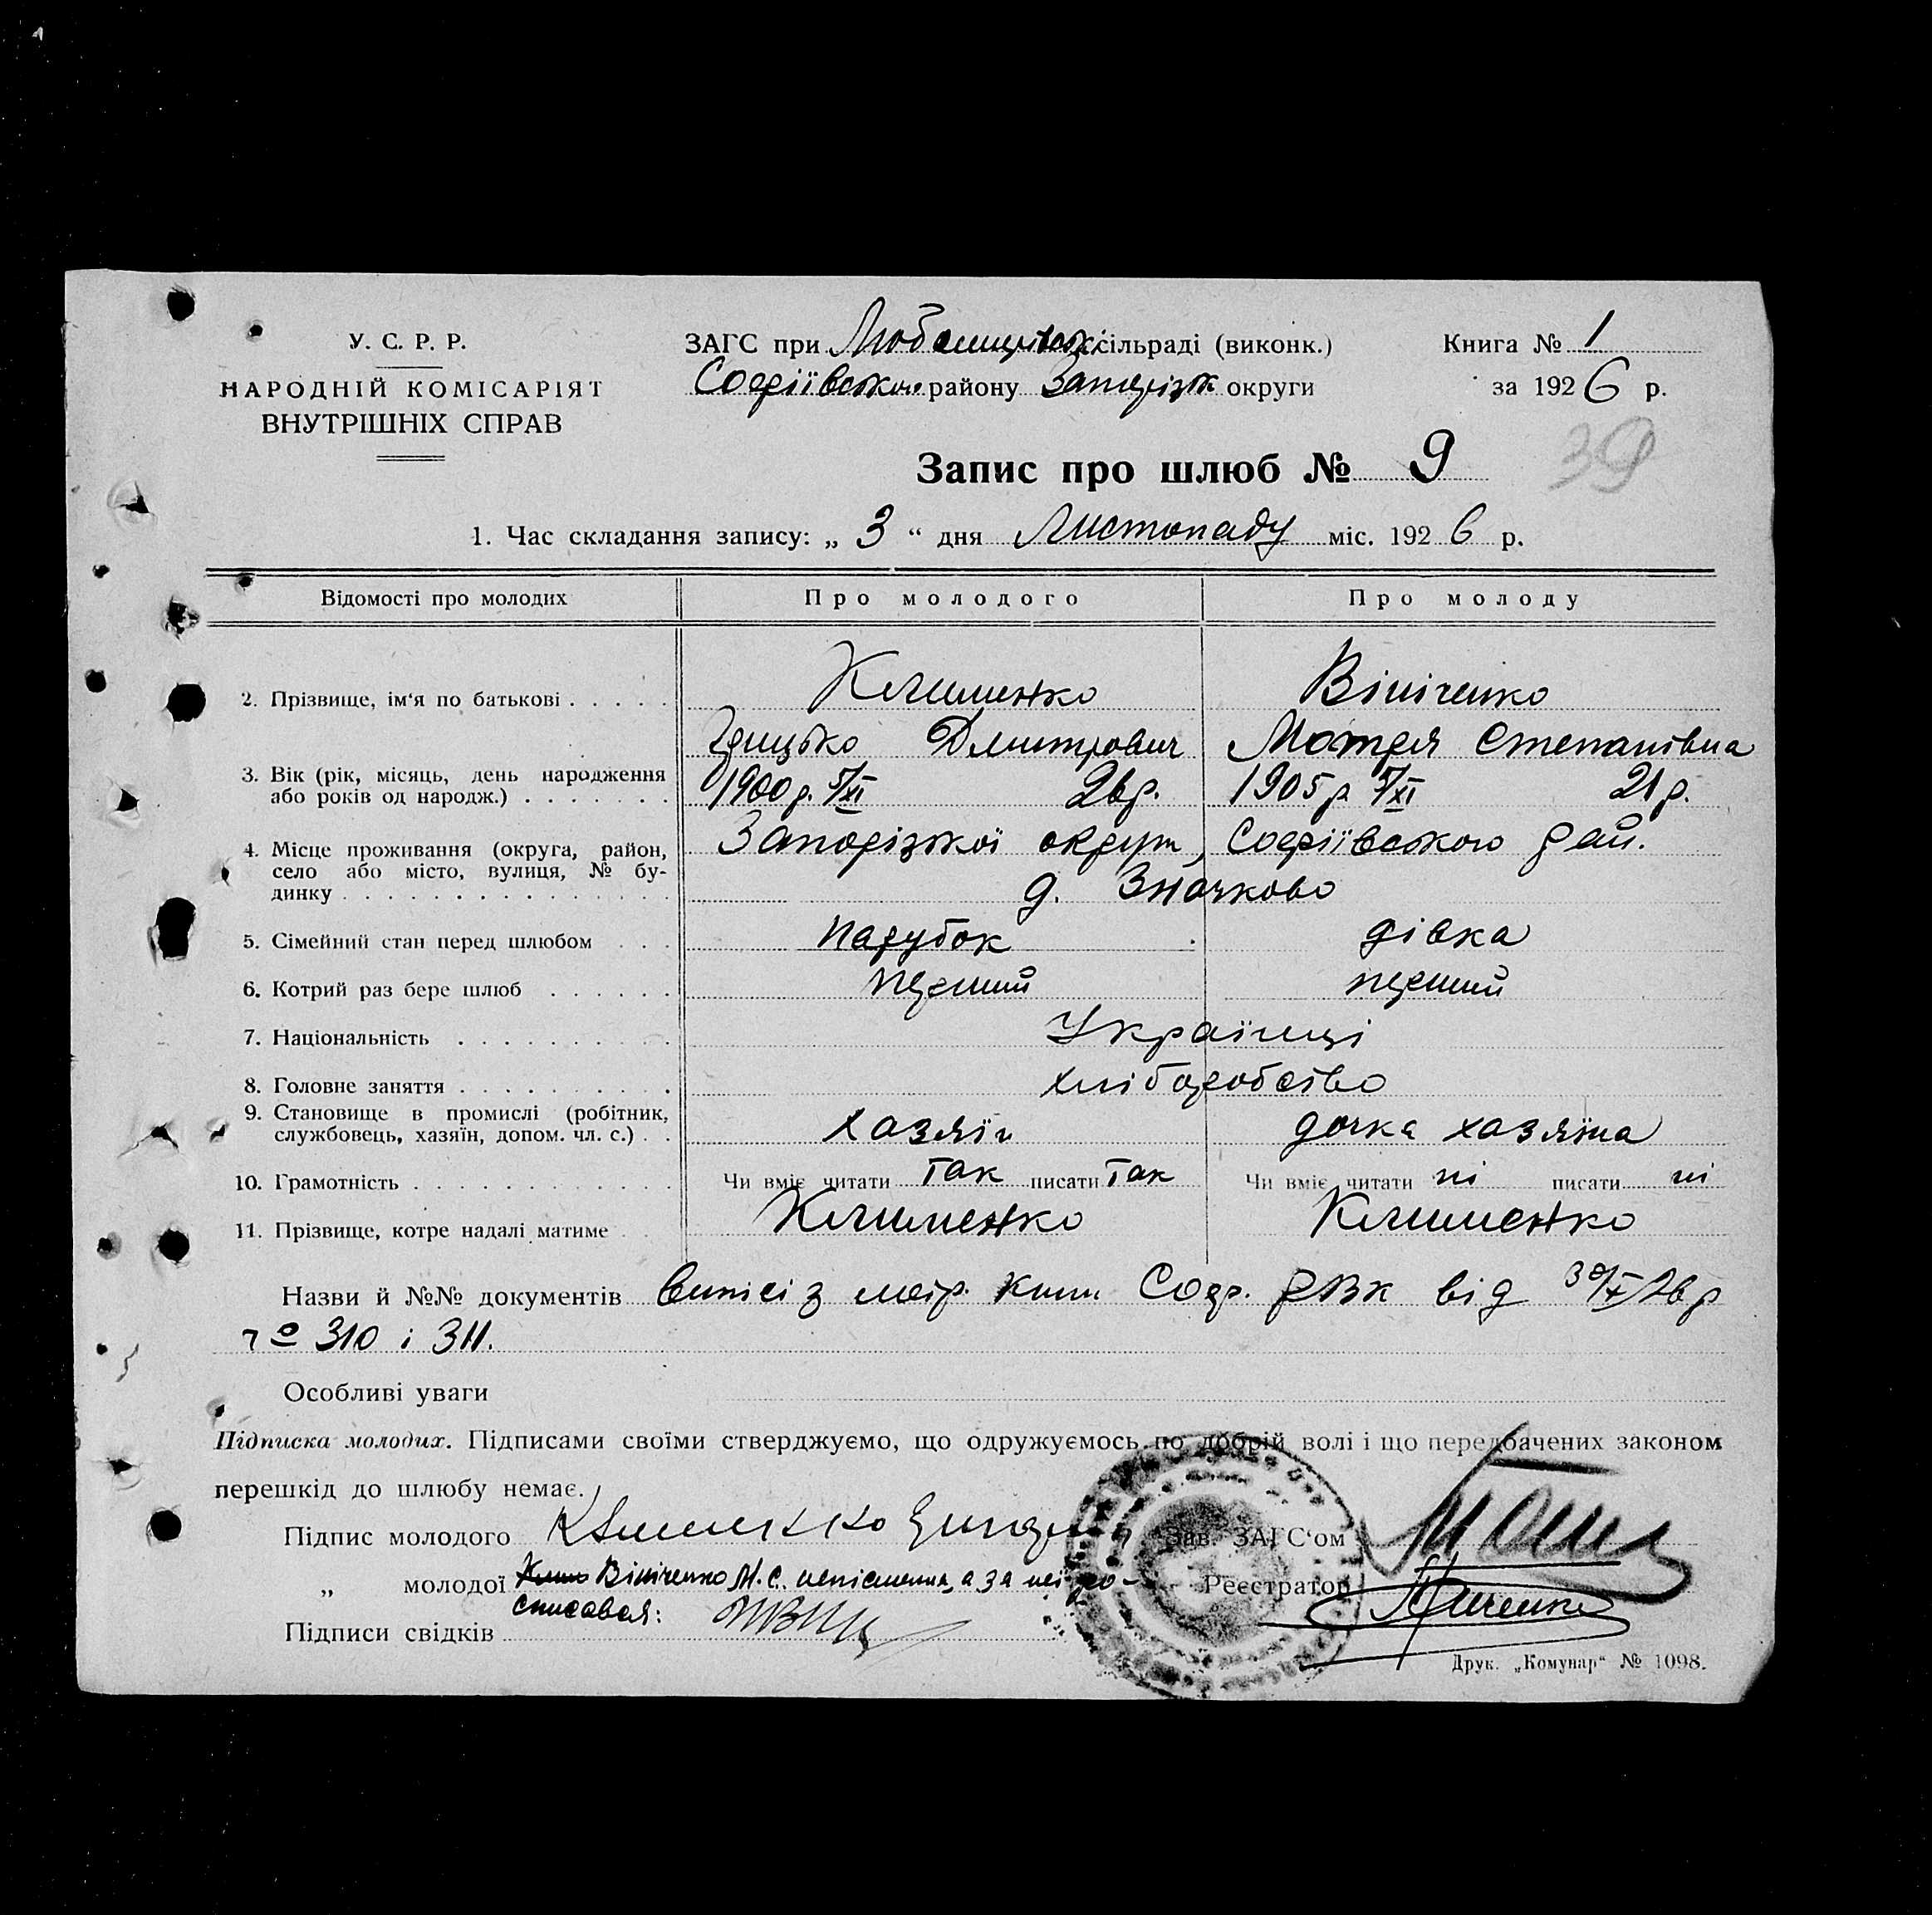 У. С. Р. Р.
НАРОДНІЙ КОМІСАРІЯТ
ВНУТРІШНІХ СПРАВ
ЗАГС при сільраді (виконк.)
Софіївського району Запоріжк округи
Книга № 1
за 1926 р.
39
Запис про шлюб № 9
1. Час складання запису: „ 3 “ дня Листопаду міс. 1926 р.
Відомості про молодих Про молодого Про молоду
2. Прізвище, ім'я по батькові Клименко Вініченко
Грицько Дмитрович Мотря Степанівна
3. Вік (рік, місяць, день народження
або років од народж.) 1900 р. 5/XI 26 р. 1905 р 5/XI 21 р.
4. Місце проживання (округа, район,
село або місто, вулиця, № бу-
динку Запорізької округи, Софіївського рай.
д. Значково
5. Сімейний стан перед шлюбом парубок дівка
6. Котрий раз бере шлюб перший перший
7. Національність Українці
8. Головне заняття хліборобство
9. Становище в промислі (робітник,
службовець, хазяїн, допом. чл. с.) хазяїн дочка хазяїна
10. Грамотність Чи вміє читати так писати так Чи вміє читати ні писати ні
11. Прізвище, котре надалі матиме Клименко Клименко
Назви й №№ документів виписі з метр. книг Соф. РВК від 30/X 26 р
№ 310 і 311.
Особливі уваги
Підписка молодих. Підписами своїми стверджуємо, що одружуємось по добрій волі і що передбачених законом
перешкід до шлюбу немає.
Підпис молодого Клименко Зав. ЗАГС'ом
„ молодої Вініченко М. С. неписьменна, а за неї ро-
списався: Реєстратор
Підписи свідків
Друк. „Комунар“ № 1098.